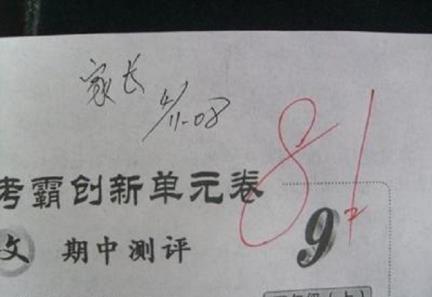 家长
81
考霸创新单元卷
文 期中测评
9